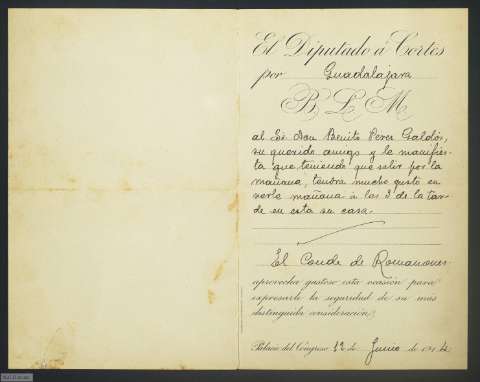 El Diputado á Cortes
por Guadalajara
B L M
al Sr. Don Benito Perez Galdós,
su querido amigo y le manifies-
ta que, teniendo que salir por la
mañana, tendra mucho gusto en
verle mañana a las 3 de la tar-
de en esta su casa.
El Conde de Romanones
aprovecha gustoso esta ocasión para
expresarle la seguridad de su más
distinguida consideración.
Palacio del Congreso 12 de Junio de 191